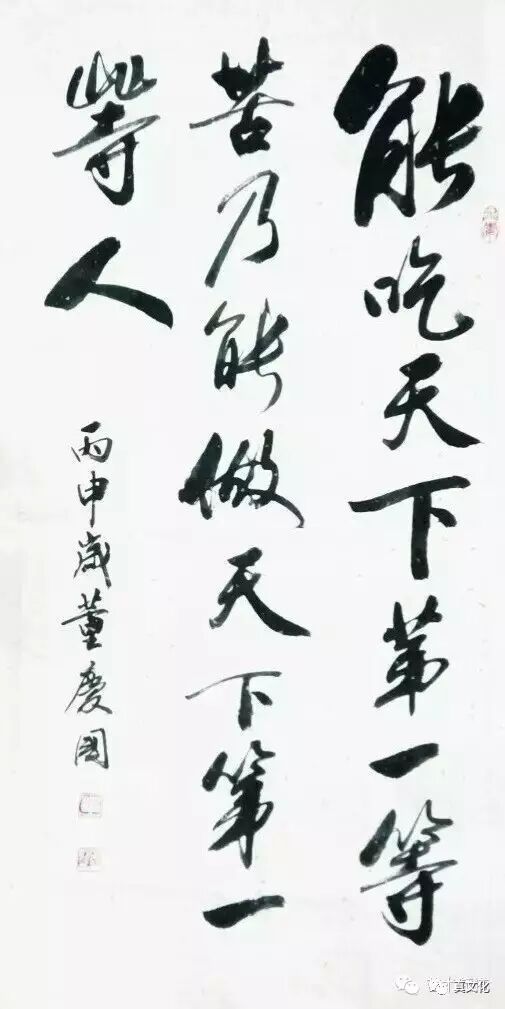 能吃天下第一等
苦乃能做天下第一
等人
丙申歲董慶國
真文化